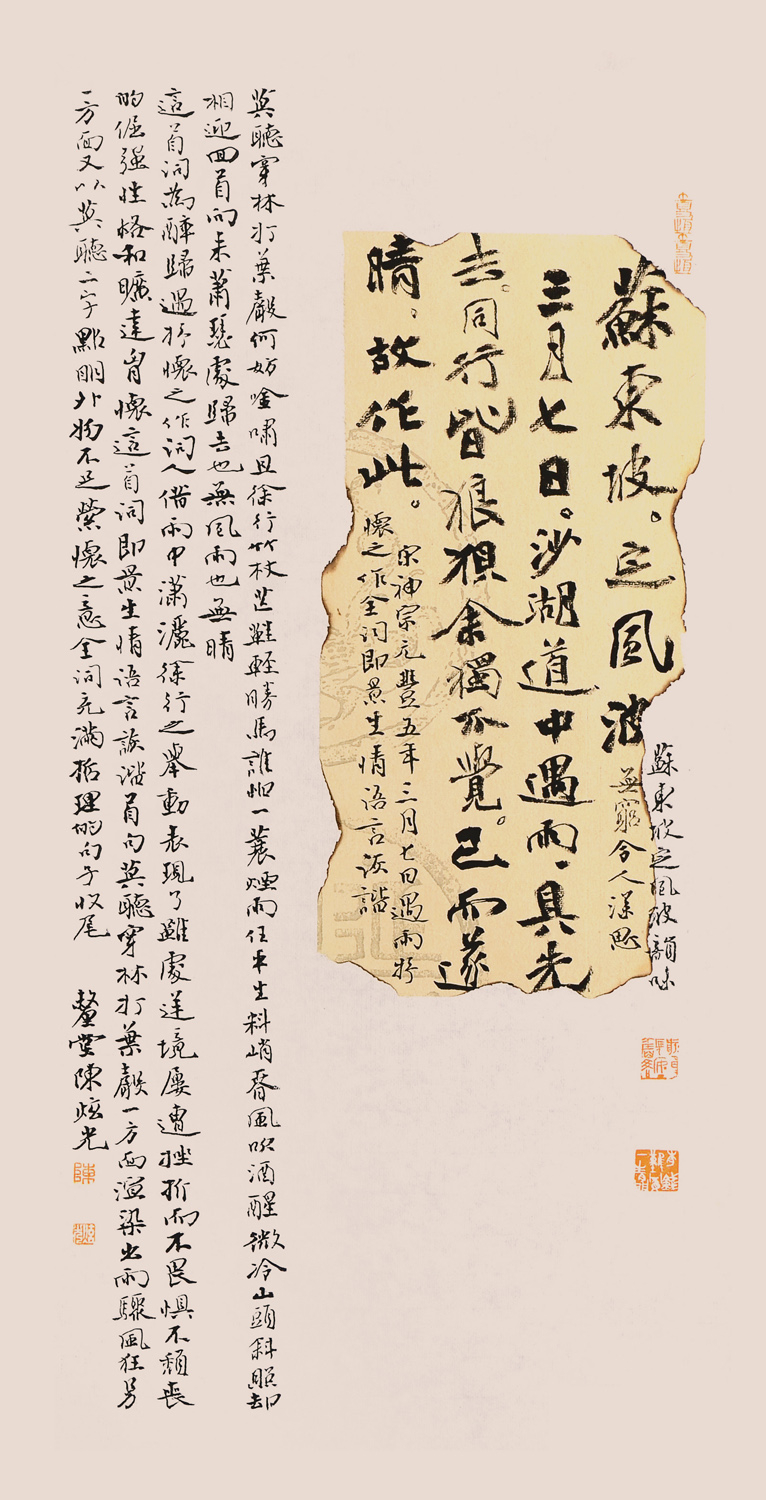 蘇東坡。定風波
蘇東坡定風波韻味
無窮令人深思
三月七日。沙湖道中遇雨、具先
去。同行皆狼狽余獨不覺。已而遂
晴。故作此。
宋神宗元豐五年三月七日遇雨抒
懷之作全词即景生情语言诙諧
莫聽穿林打葉聲何妨唫嘯且徐行竹杖芒鞋輕勝馬誰怕一蓑煙雨任平生料峭春風吹酒醒微冷山頭斜照却
相迎回首向来蕭瑟處歸去也無風雨也無晴
這首词為醉歸遇抒懷之作词人借雨中瀟灑徐行之舉動表現了雖處逆境屢遭挫折而不畏惧不頹喪
的倔强性格和曠達胷懷這首词即景生情语言詼谐首句莫聽穿林打葉聲一方面渲染出雨驟風狂另
一方面又以莫聽二字點明外物不足縈懷之意全词充滿哲理的句子收尾
堂陳炫光
陳
炫光